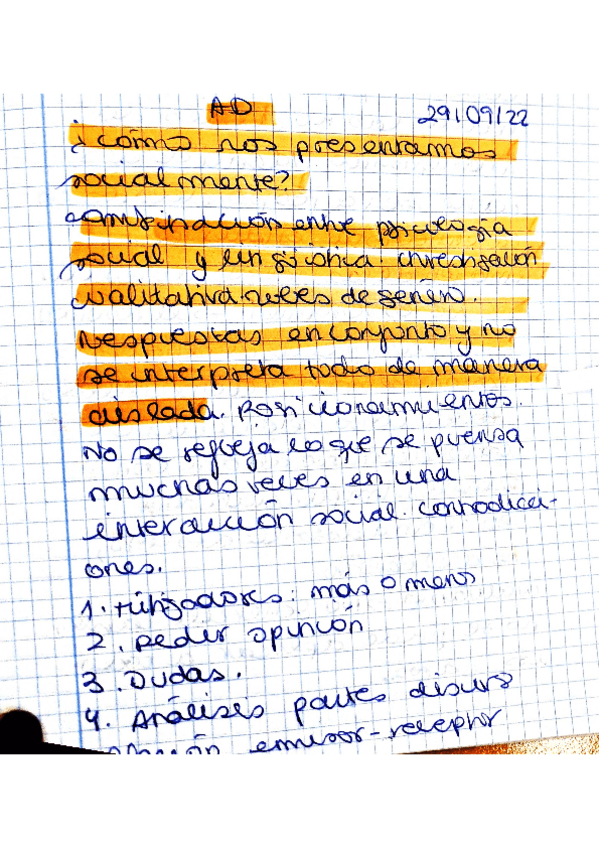 AD
29/09/22
¿cómo nos presentamos
socialmente?
combinación entre psicología
social y lingüística. investigación
cualitativa. roles de género.
respuestas en conjunto y no
se interpreta todo de manera
aislada. Posicionamientos.
No se refleja lo que se piensa
muchas veces en una
interacción social. contradicci-
ones.
1. más o menos
2. pedir opinión
3. Dudas.
4. Análisis partes discurso
emisor-receptor